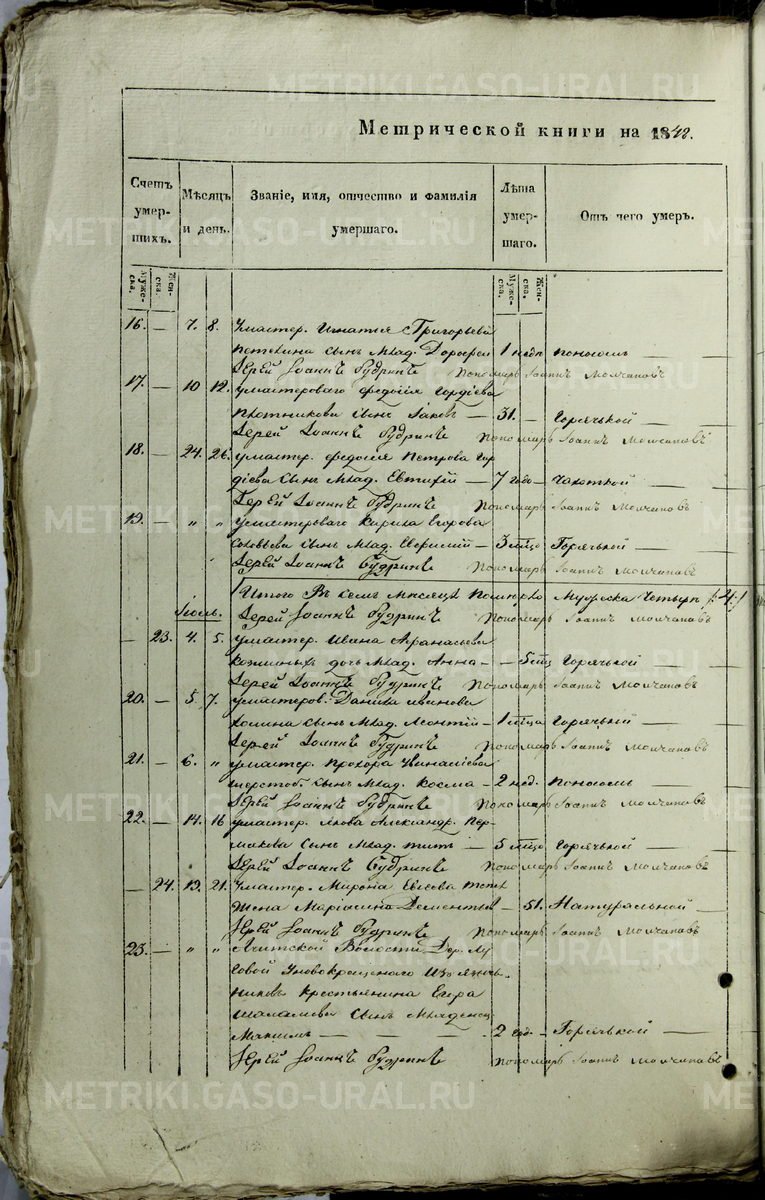 METRIKI.GASO-URAL.RU
Метрической книги на 1842.
Счетъ умершихъ. Мѣсяцъ и день. Званіе, имя, отчество и фамилія умершаго. Лѣта умершаго. Отъ чего умеръ.
Мужеска. Женска. Мужеска. Женска.
16. — 7. 8. Умастер. Игнатья Григорьева
сынъ млад. Дорофей 1 недѣ поносомъ
Іерей Іоаннъ Будринъ Пономарь Іоаннъ Молчановъ
17. — 10 12. умастероваго Федосія Гордіева
Плотникова сынъ Іаковъ — 31. — Горячькой —
Іерей Іоаннъ Будринъ Пономарь Іоаннъ Молчановъ
18. — 24. 26. умастер. Федосія Петрова Гор
діева сынъ млад. Евтихій — 7 годо — чахоткой —
Іерей Іоаннъ Будринъ Пономарь Іоаннъ Молчановъ
19. — „ „ умастероваго Кирила Егорова
Соловьева сынъ млад. — 3 мѣц Горячькой —
Іерей Іоаннъ Будринъ Пономарь Іоаннъ Молчановъ
Итого въ семъ мѣсяцѣ померло мужеска четыри /:4:/
Іюль. Іерей Іоаннъ Будринъ Пономарь Іоаннъ Молчановъ
— 23. 4. 5. умастер. Ивана Афанасьева
дочь млад. Анна — — 5 мѣц Горячькой —
Іерей Іоаннъ Будринъ Пономарь Іоаннъ Молчановъ
20. — 5. 7. умастеров. Данила Иванова
сынъ млад. Леонтій — 1 мѣца Горячькой —
Іерей Іоаннъ Будринъ Пономарь Іоаннъ Молчановъ
21. — 6. „ умастер. Прохора
сынъ млад. Косма — 2 нед. поносомъ —
Іерей Іоаннъ Будринъ Пономарь Іоаннъ Молчановъ
22. — 14. 16 умастер. Якова Александр. Пер
мякова сынъ млад. Титъ — 5 мѣцо Горячькой —
Іерей Іоаннъ Будринъ Пономарь Іоаннъ Молчановъ
— 24. 19. 21. Умастер. Мирона
жена Дементьев — 51. Натуральной —
Іерей Іоаннъ Будринъ Пономарь Іоаннъ Молчановъ
23. — „ „ Волости Дер.
новокрещенаго изъ языч
никовъ крестьянина Егора
сынъ младенец
Максимъ — 2 год. — Горячькой —
Іерей Іоаннъ Будринъ Пономарь Іоаннъ Молчановъ